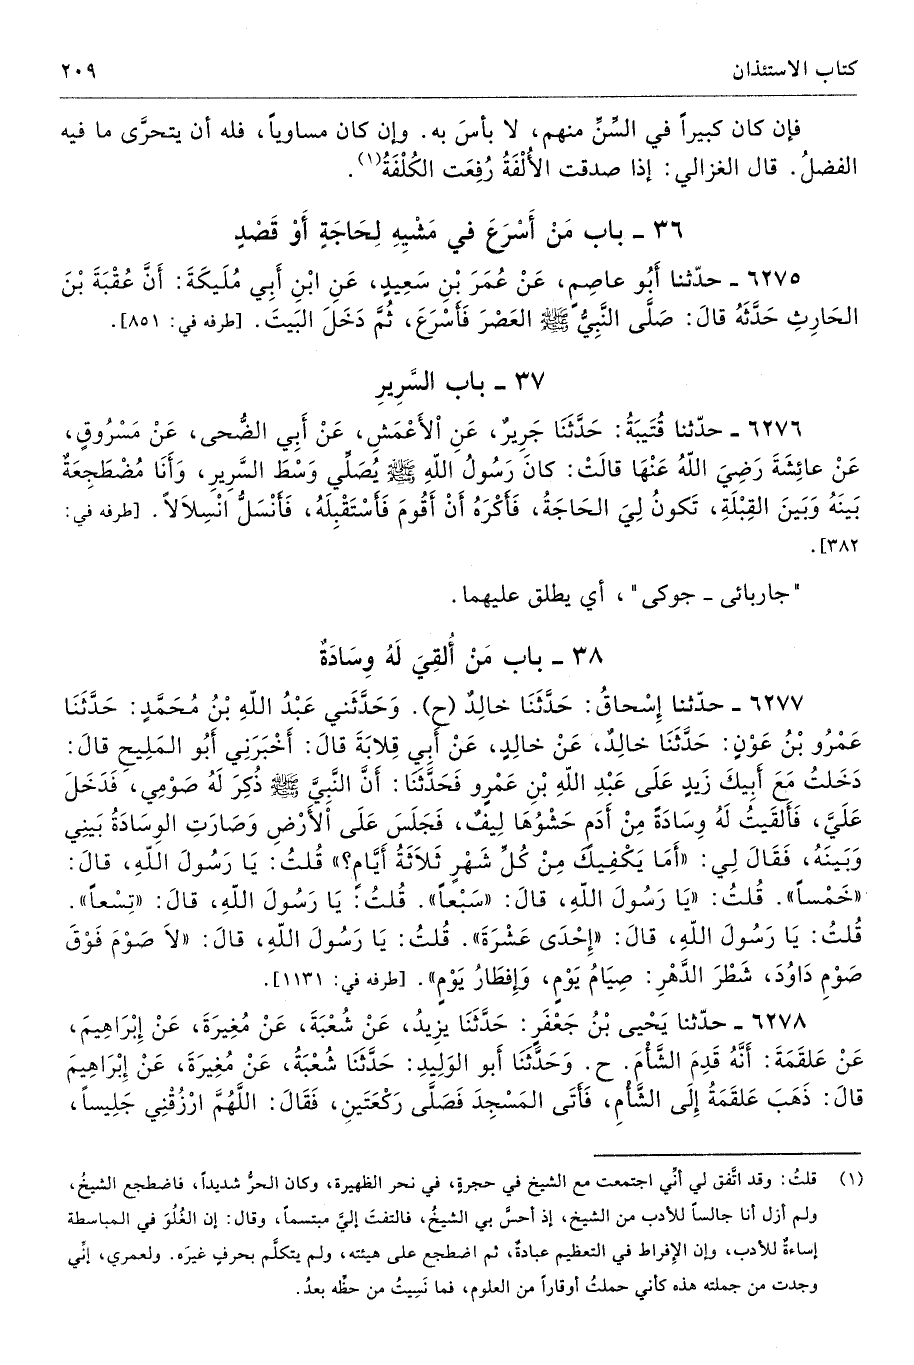 كتاب الاستئذان ٢٠٩
فإن كان كبيراً في السِّنِّ منهم، لا بأسَ به. وإن كان مساوياً، فله أن يتحرَّى ما فيه
الفضلُ. قال الغزالي: إذا صدقت الأُلْفَةُ رُفِعَت الكُلْفَةُ(١).
٣٦ - باب مَنْ أَسْرَعَ في مَشْيِهِ لِحَاجَةٍ أَوْ قَصْدٍ
٦٢٧٥ - حدّثنا أَبُو عاصِمٍ، عَنْ عُمَرَ بْنِ سَعِيدٍ، عَنِ ابْنِ أَبِي مُلَيكَةَ: أَنَّ عُقْبَةَ بْنَ
الحَارِثِ حَدَّثَهُ قالَ: صَلَّى النَّبِيُّ ﷺ العَصْرَ فَأَسْرَعَ، ثُمَّ دَخَلَ البَيتَ. [طرفه في: ٨٥١].
٣٧ - باب السَّرِيرِ
٦٢٧٦ - حدّثنا قُتَيبَةُ: حَدَّثَنَا جَرِيرٌ، عَنِ الأَعْمَشِ، عَنْ أَبِي الضُّحى، عَنْ مَسْرُوقٍ،
عَنْ عائِشَةَ رَضِيَ اللّهُ عَنْهَا قالَتْ: كانَ رَسُولُ اللّهِ ﷺ يُصَلِّي وَسْطَ السَّرِيرِ، وَأَنَا مُضْطَجِعَةٌ
بَينَهُ وَبَينَ القِبْلَةِ، تَكونُ لِيَ الحَاجَةُ، فَأَكْرَهُ أَنْ أَقُومَ فَأَسْتَقْبِلَهُ، فَأَنْسَلُّ انْسِلاَلاً. [طرفه في:
٣٨٢].
"جاربائى - جوكى"، أي يطلق عليهما.
٣٨ - باب مَنْ أُلقِيَ لَهُ وِسَادَةٌ
٦٢٧٧ - حدّثنا إِسْحاقُ: حَدَّثَنَا خالِدٌ (ح). وَحَدَّثَني عَبْدُ اللّهِ بْنُ مُحَمَّدٍ: حَدَّثَنَا
عَمْرُو بْنُ عَوْنٍ: حَدَّثَنَا خالِدٌ، عَنْ خالِدٍ، عَنْ أَبِي قِلاَبَةَ قالَ: أَخْبَرَنِي أَبُو المَلِيحِ قالَ:
دَخَلتُ مَعَ أَبِيكَ زَيدٍ عَلَى عَبْدِ اللّهِ بْنِ عَمْرٍو فَحَدَّثَنَا: أَنَّ النَّبِيَّ ﷺ ذُكِرَ لَهُ صَوْمِي، فَدَخَلَ
عَلَيَّ، فَأَلقَيتُ لَهُ وِسَادَةً مِنْ أَدَمٍ حَشْوُهَا لِيفٌ، فَجَلَسَ عَلَى الأَرْضِ وَصَارَتِ الوِسَادَةُ بَينِي
وَبَينَهُ، فَقَالَ لِي: «أَمَا يَكْفِيكَ مِنْ كُلِّ شَهْرٍ ثَلاَثَةُ أَيَّامٍ؟» قُلتُ: يَا رَسُولَ اللّهِ، قالَ:
«خَمْساً». قُلتُ: «يَا رَسُولَ اللّهِ، قالَ: «سَبْعاً». قُلتُ: يَا رَسُولَ اللّهِ، قالَ: «تِسْعاً».
قُلتُ: يَا رَسُولَ اللّهِ، قالَ: «إِحْدَى عَشْرَةَ». قُلتُ: يَا رَسُولَ اللّهِ، قالَ: «لاَ صَوْمَ فَوْقَ
صَوْمِ دَاوُدَ، شَطْرَ الدَّهْرِ: صِيَامُ يَوْمٍ، وَإِفطَارُ يَوْمٍ». [طرفه في: ١١٣١].
٦٢٧٨ - حدّثنا يَحْيى بْنُ جَعْفَرٍ: حَدَّثَنَا يزِيدُ، عَنْ شُعْبَةَ، عَنْ مُغِيرَةَ، عَنْ إِبْرَاهِيمَ،
عَنْ عَلقَمَةَ: أَنَّهُ قَدِمَ الشَّأْمَ. ح. وَحَدَّثَنَا أَبو الوَلِيدِ: حَدَّثَنَا شُعْبَةُ، عَنْ مُغِيرَةَ، عَنْ إِبْرَاهِيمَ
قالَ: ذَهَبَ عَلقَمَةُ إِلَى الشَّأْمِ، فَأَتَى المَسْجِدَ فَصَلَّى رَكْعَتَينِ، فَقَالَ: اللَّهُمَّ ارْزُقْنِي جَلِيساً،
(١) قلتُ: وقد اتَّفق لي أنِّي اجتمعت مع الشيخ في حجرةٍ، في نحر الظهيرة، وكان الحرُّ شديداً، فاضطجع الشيخُ،
ولم أزل أنا جالساً للأدب من الشيخ، إذ أحسَّ بي الشيخُ، فالتفتَ إليَّ مبتسماً، وقال: إن الغُلُوَ في المباسطة
إساءةٌ للأدب، وإن الإِفراط في التعظيم عبادةٌ، ثم اضطجع على هيئته، ولم يتكلَّم بحرفٍ غيرَه. ولعمري، إنِّي
وجدت من جملته هذه كأني حملتُ أوقاراً من العلوم، فما نَسِيتُ من حظِّه بعدُ.